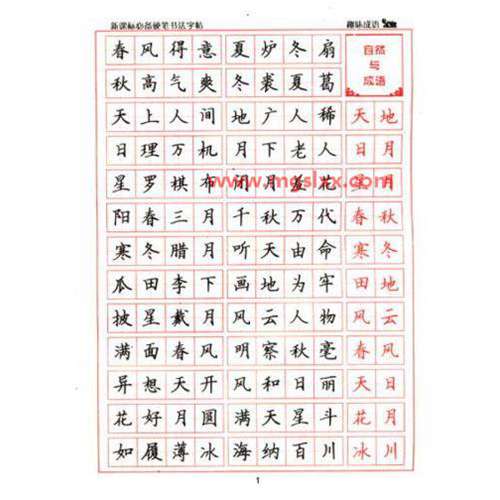 新课标必备硬笔书法字帖 趣味成语
春风得意 夏炉冬扇
自然与成语
秋高气爽 冬裘夏葛
天上人间 地广人稀 天地
日理万机 月下老人 日月
星罗棋布 闭月羞花 星月
www.mcslxx.com
阳春三月 千秋万代 春秋
寒冬腊月 听天由命 寒冬
瓜田李下 画地为牢 田地
披星戴月 风云人物 风云
满面春风 明察秋毫 春风
异想天开 风和日丽 天日
花好月圆 满天星斗 花月
如履薄冰 海纳百川 冰川
1